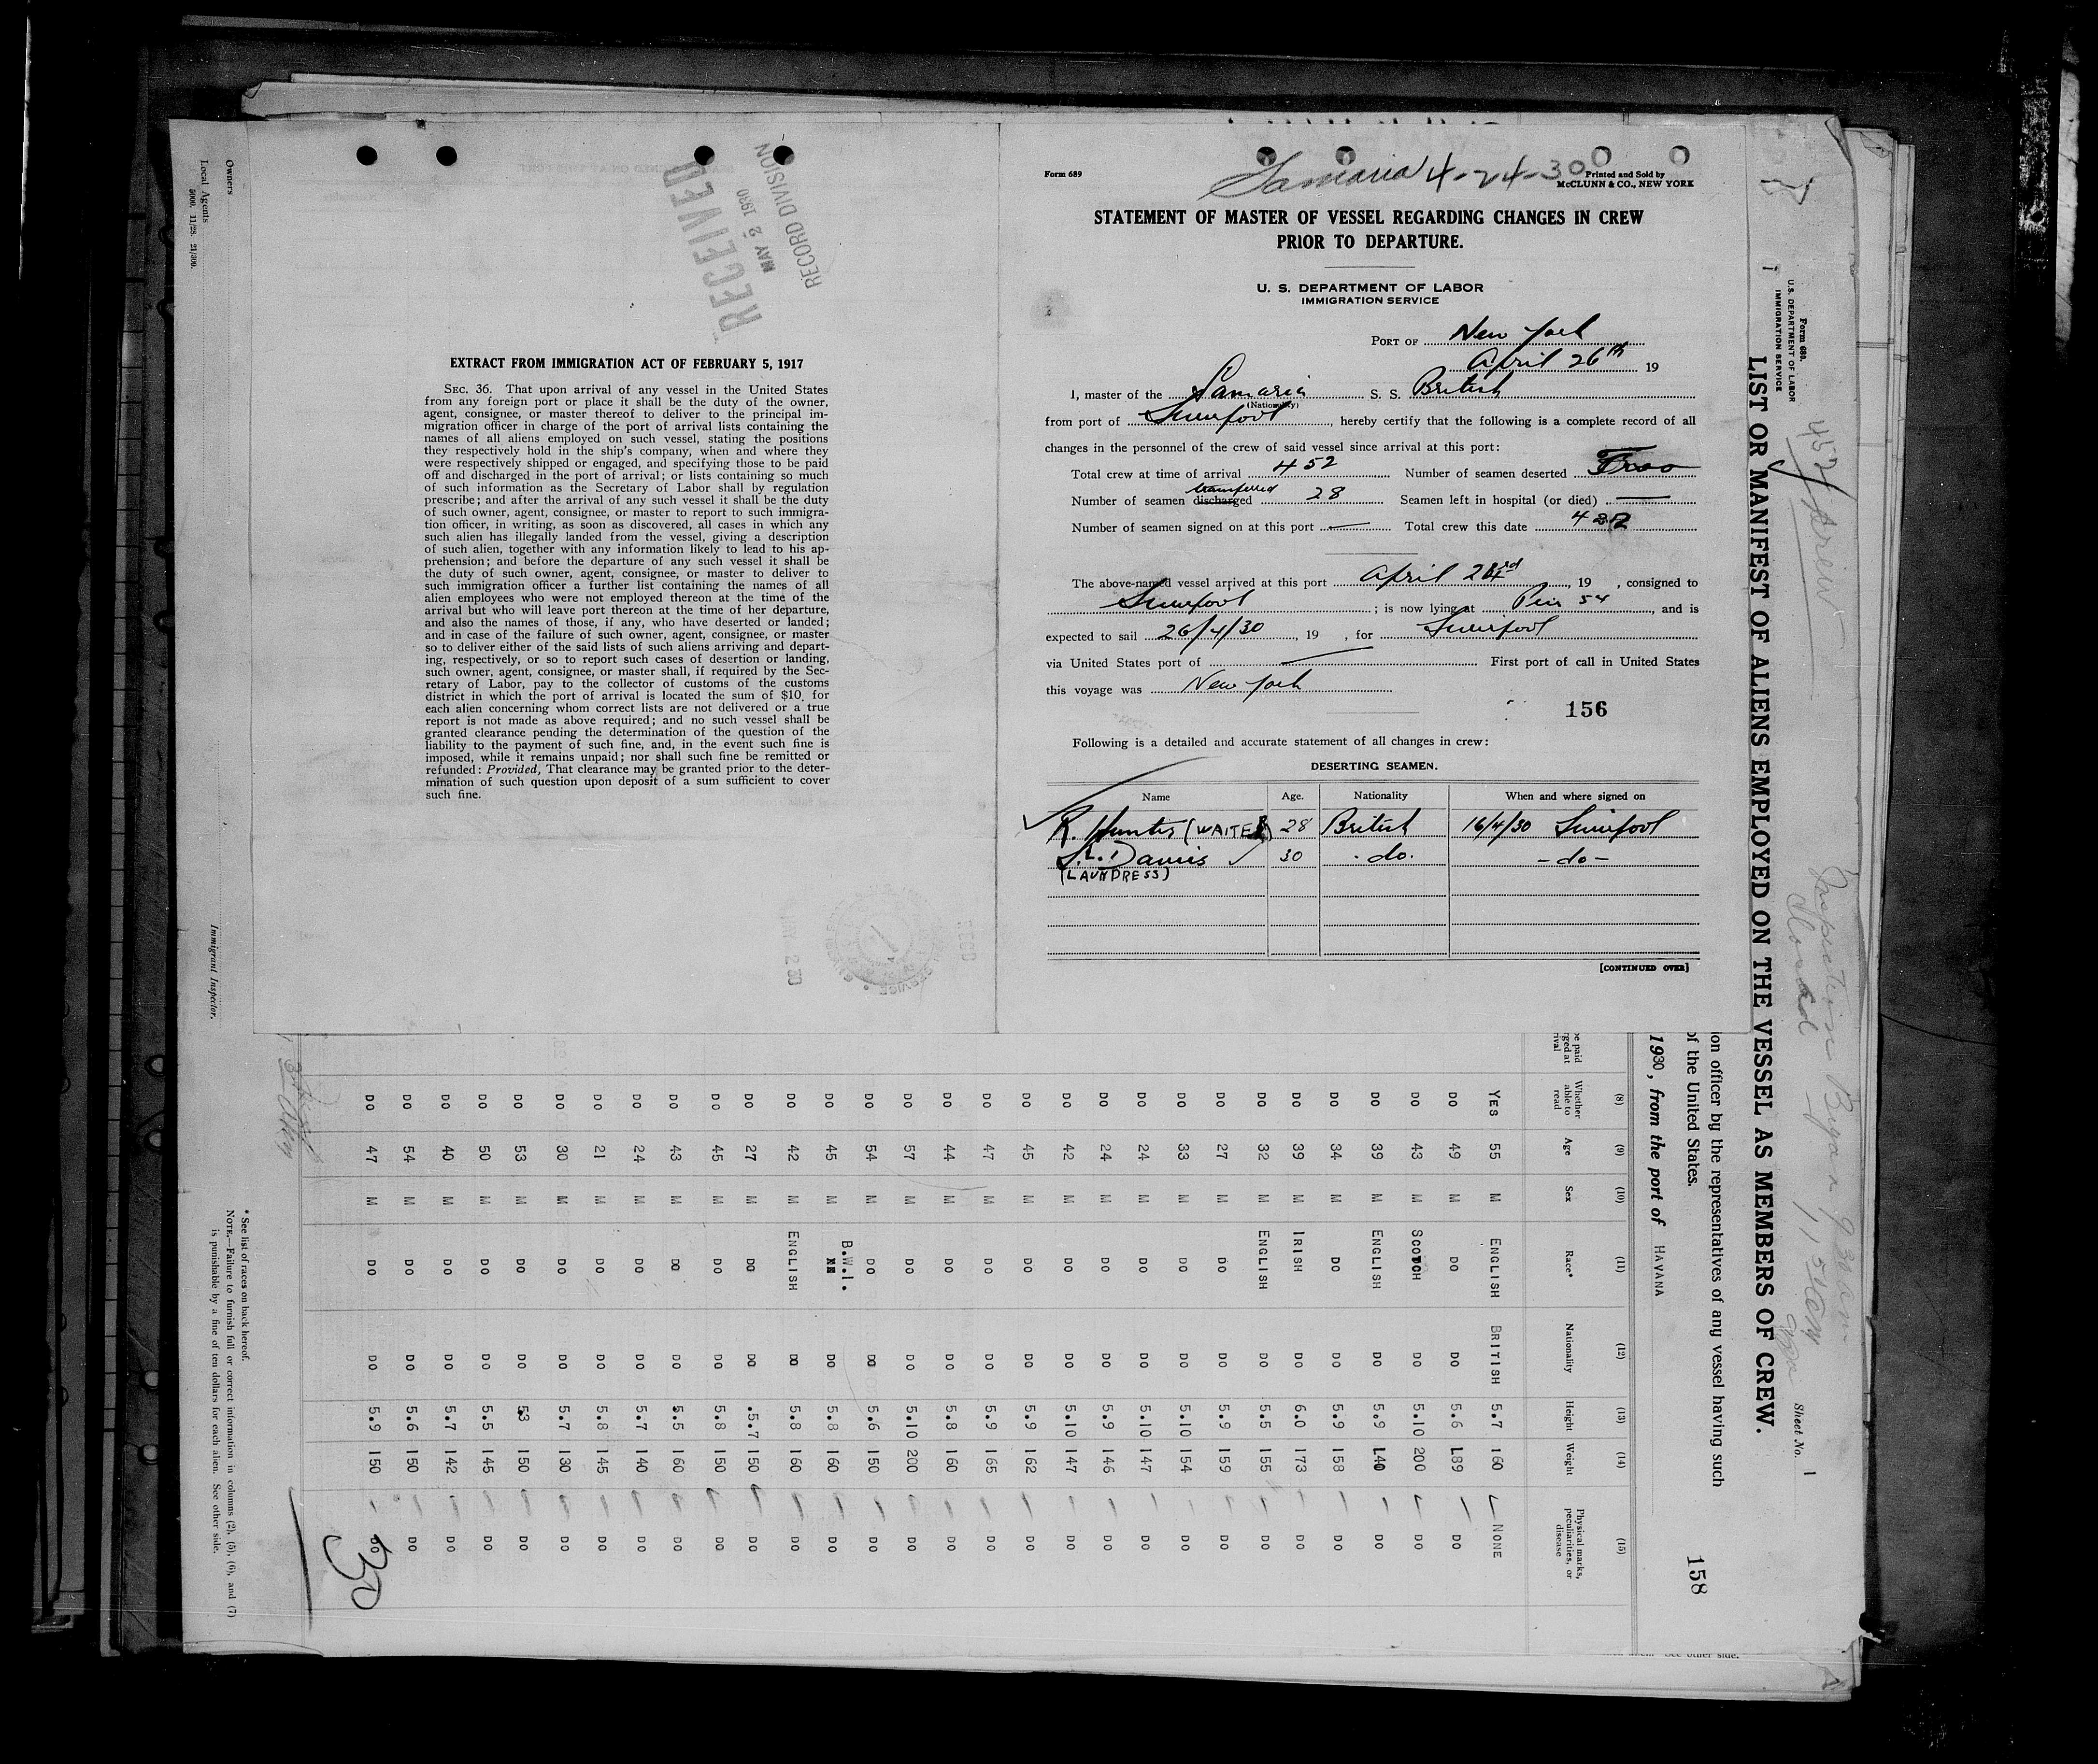 Form 689
Samaria 4-24-30
Printed and Sold by
McCLUNN & CO., NEW YORK
STATEMENT OF MASTER OF VESSEL REGARDING CHANGES IN CREW
PRIOR TO DEPARTURE.
U. S. DEPARTMENT OF LABOR
IMMIGRATION SERVICE
PORT OF New York
April 26th 19
I, master of the Samaria S. S. British
(Nationality)
from port of Liverpool, hereby certify that the following is a complete record of all
changes in the personnel of the crew of said vessel since arrival at this port:
Total crew at time of arrival 452 Number of seamen deserted Two
transferred
Number of seamen discharged 28 Seamen left in hospital (or died) —
Number of seamen signed on at this port — Total crew this date 422
The above-named vessel arrived at this port April 24, 19 , consigned to
Liverpool ; is now lying at Pier 54, and is
expected to sail 26/4/30, 19 , for Liverpool
via United States port of — First port of call in United States
this voyage was New York
156
Following is a detailed and accurate statement of all changes in crew:
DESERTING SEAMEN.
Name Age. Nationality When and where signed on
R. Hunter (WAITER) 28 British 16/4/30 Liverpool
L. Davis 30 - do. - do -
(LAUNDRESS)
[CONTINUED OVER]
RECEIVED
MAY 2 1930
RECORD DIVISION
EXTRACT FROM IMMIGRATION ACT OF FEBRUARY 5, 1917
SEC. 36. That upon arrival of any vessel in the United States
from any foreign port or place it shall be the duty of the owner,
agent, consignee, or master thereof to deliver to the principal im-
migration officer in charge of the port of arrival lists containing the
names of all aliens employed on such vessel, stating the positions
they respectively hold in the ship's company, when and where they
were respectively shipped or engaged, and specifying those to be paid
off and discharged in the port of arrival; or lists containing so much
of such information as the Secretary of Labor shall by regulation
prescribe; and after the arrival of any such vessel it shall be the duty
of such owner, agent, consignee, or master to report to such immigra-
tion officer, in writing, as soon as discovered, all cases in which any
such alien has illegally landed from the vessel, giving a description
of such alien, together with any information likely to lead to his ap-
prehension; and before the departure of any such vessel it shall be
the duty of such owner, agent, consignee, or master to deliver to
such immigration officer a further list containing the names of all
alien employees who were not employed thereon at the time of the
arrival but who will leave port thereon at the time of her departure,
and also the names of those, if any, who have deserted or landed;
and in case of the failure of such owner, agent, consignee, or master
so to deliver either of the said lists of such aliens arriving and depart-
ing, respectively, or so to report such cases of desertion or landing,
such owner, agent, consignee, or master shall, if required by the Sec-
retary of Labor, pay to the collector of customs of the customs
district in which the port of arrival is located the sum of $10 for
each alien concerning whom correct lists are not delivered or a true
report is not made as above required; and no such vessel shall be
granted clearance pending the determination of the question of the
liability to the payment of such fine, and, in the event such fine is
imposed, while it remains unpaid; nor shall such fine be remitted or
refunded: Provided, That clearance may be granted prior to the deter-
mination of such question upon deposit of a sum sufficient to cover
such fine.
Form 689.
U.S. DEPARTMENT OF LABOR
IMMIGRATION SERVICE
452 crew
Inspection Began 930 am
Closed
Sheet No. 1
LIST OR MANIFEST OF ALIENS EMPLOYED ON THE VESSEL AS MEMBERS OF CREW.
ion officer by the representatives of any vessel having such
of the United States.
158
1930, from the port of HAVANA
(8) (9) (10) (11) (12) (13) (14) (15)
Whether able to read Age Sex Race* Nationality Height Weight Physical marks, peculiarities, or disease
YES 55 M ENGLISH BRITISH 5.7 160 NONE
DO 49 M DO DO 5.6 189 DO
DO 43 M SCOTCH DO 5.10 200 DO
DO 39 M ENGLISH DO 5.9 140 DO
DO 34 M DO DO 5.9 158 DO
DO 39 M IRISH DO 6.0 173 DO
DO 32 M ENGLISH DO 5.5 155 DO
DO 27 M DO DO 5.9 159 DO
DO 33 M DO DO 5.10 154 DO
DO 24 M DO DO 5.10 147 DO
DO 24 M DO DO 5.9 146 DO
DO 42 M DO DO 5.10 147 DO
DO 45 M DO DO 5.9 162 DO
DO 47 M DO DO 5.9 165 DO
DO 44 M DO DO 5.8 160 DO
DO 57 M DO DO 5.10 200 DO
DO 54 M DO DO 5.6 150 DO
DO 45 M B.W.I. DO 5.8 160 DO
DO 42 M ENGLISH DO 5.8 160 DO
DO 27 M DO DO 5.7 150 DO
DO 45 M DO DO 5.8 150 DO
DO 43 M DO DO 5.5 160 DO
DO 24 M DO DO 5.7 140 DO
DO 21 M DO DO 5.8 145 DO
DO 30 M DO DO 5.7 130 DO
DO 53 M DO DO 53 150 DO
DO 50 M DO DO 5.5 145 DO
DO 40 M DO DO 5.7 142 DO
DO 54 M DO DO 5.6 150 DO
DO 47 M DO DO 5.9 150 DO
30
* See list of races on back hereof.
NOTE.—Failure to furnish full or correct information in columns (2), (5), (6), and (7)
is punishable by a fine of ten dollars for each alien. See other side.
Owners
Local Agents
Immigrant Inspector.